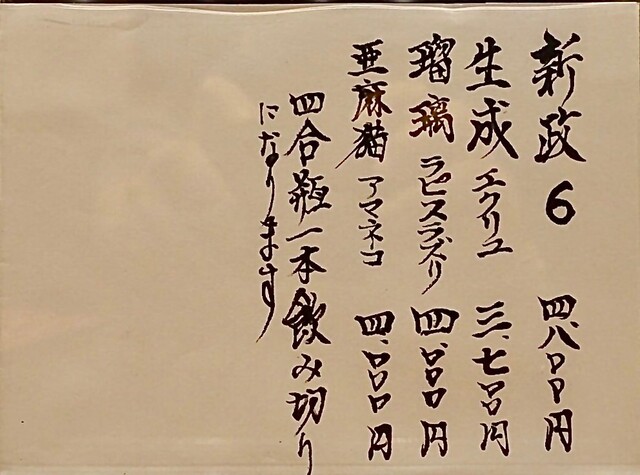 新政 6 四、八〇〇円
生成 エクリユ 三、七〇〇円
瑠璃 ラピスラズリ 四、〇〇〇円
亜麻猫 アマネコ 四、〇〇〇円
四合瓶一本飲み切り
になります